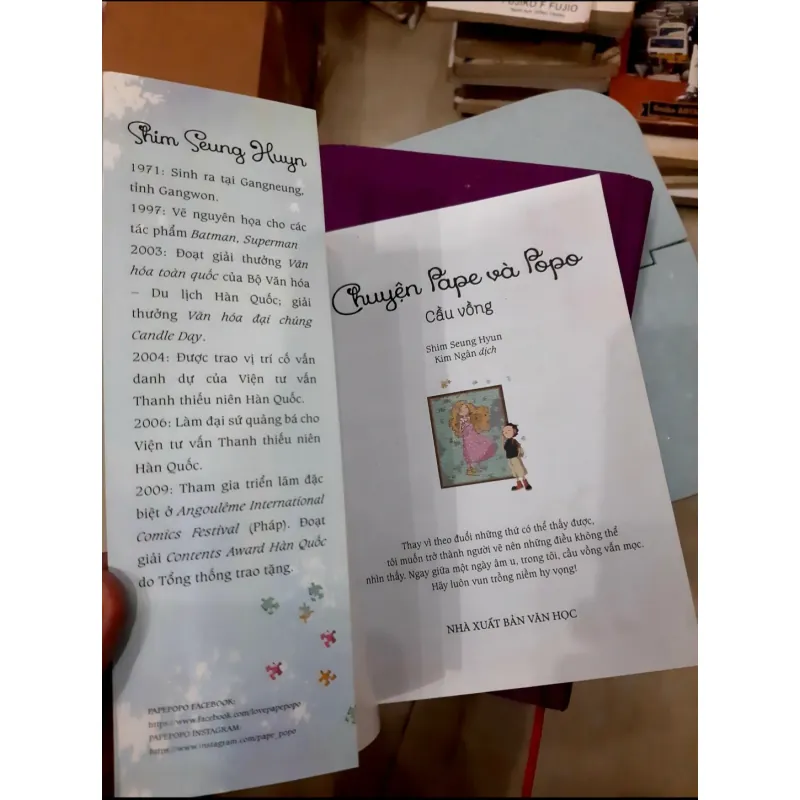 FUJIKO F FUJIO
Shim Seung Huyn
1971: Sinh ra tại Gangneung,
tỉnh Gangwon.
1997: Vẽ nguyên họa cho các
tác phẩm Batman, Superman
2003: Đoạt giải thưởng Văn
hóa toàn quốc của Bộ Văn hóa
– Du lịch Hàn Quốc; giải
thưởng Văn hóa đại chúng
Candle Day.
2004: Được trao vị trí cố vấn
danh dự của Viện tư vấn
Thanh thiếu niên Hàn Quốc.
2006: Làm đại sứ quảng bá cho
Viện tư vấn Thanh thiếu niên
Hàn Quốc.
2009: Tham gia triển lãm đặc
biệt ở Angoulême International
Comics Festival (Pháp). Đoạt
giải Contents Award Hàn Quốc
do Tổng thống trao tặng.
PAPEPOPO FACEBOOK:
https://www.facebook.com/lovepapepopo
PAPEPOPO INSTAGRAM:
https://www.instagram.com/pape_popo
Chuyện Pape và Popo
Cầu vồng
Shim Seung Hyun
Kim Ngân dịch
Thay vì theo đuổi những thứ có thể thấy được,
tôi muốn trở thành người vẽ nên những điều không thể
nhìn thấy. Ngay giữa một ngày âm u, trong tôi, cầu vồng vẫn mọc.
Hãy luôn vun trồng niềm hy vọng!
NHÀ XUẤT BẢN VĂN HỌC